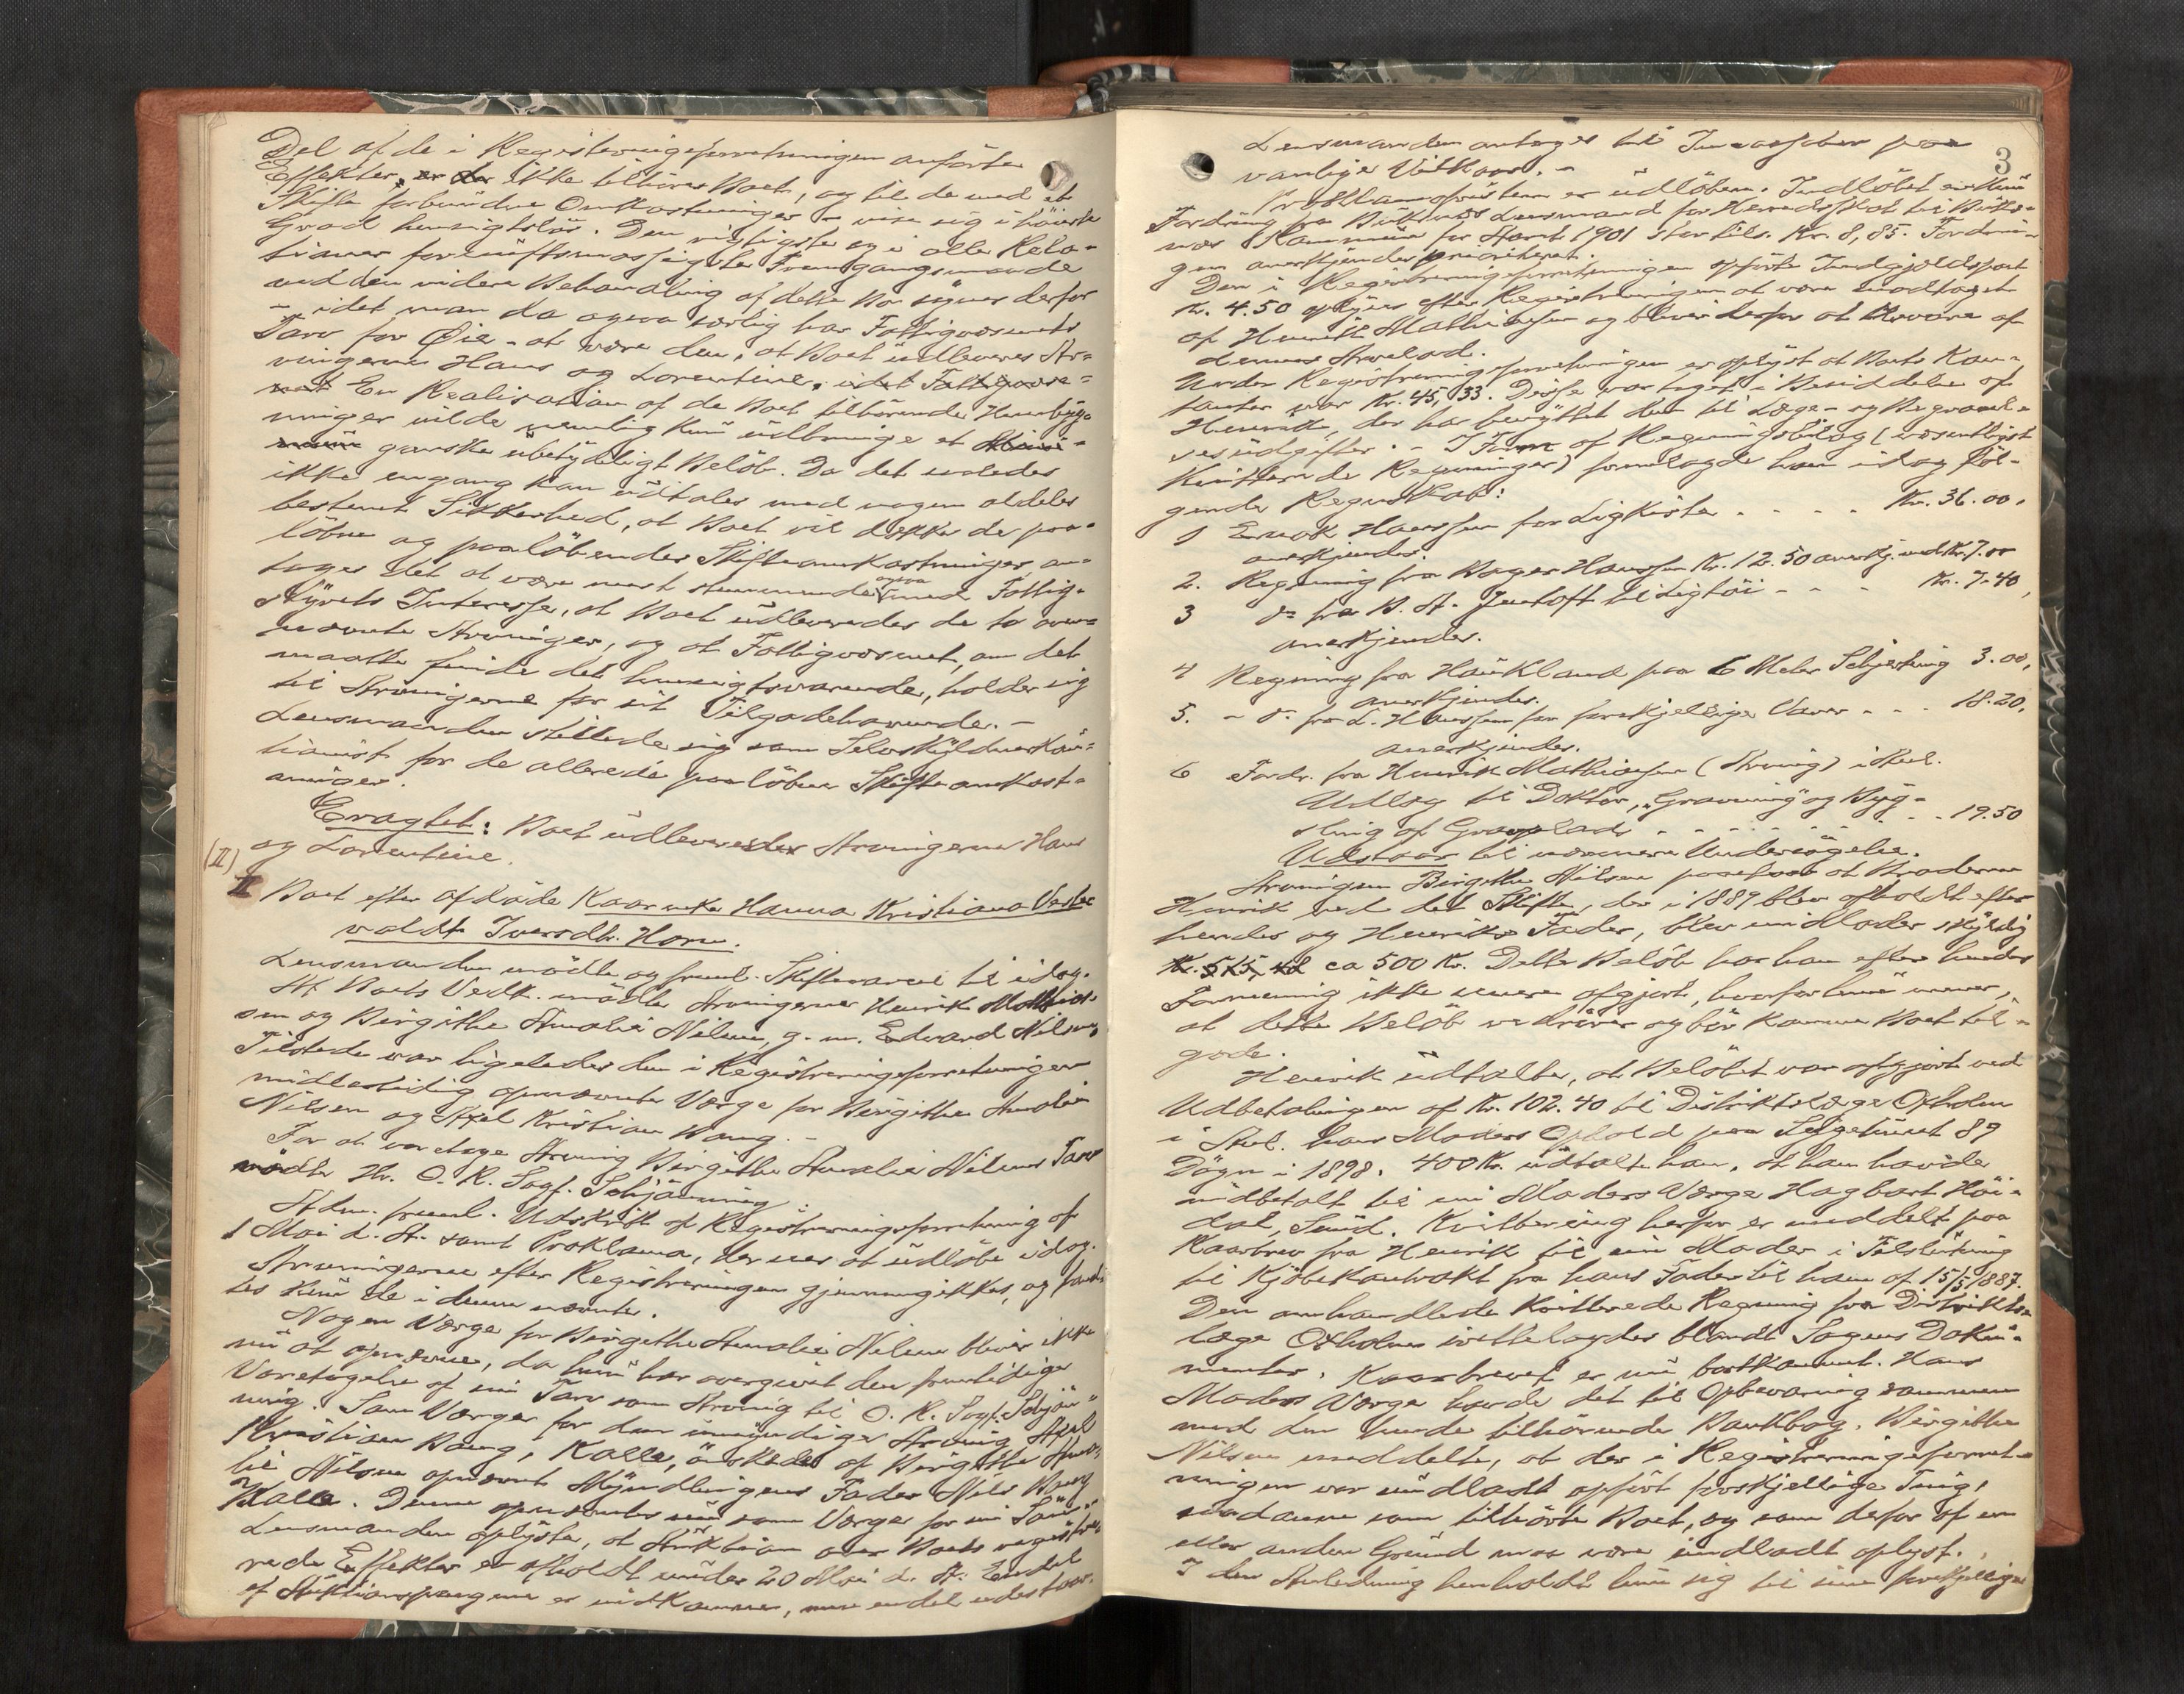 Del af de i Registreringsforretningen anførte
Effekter, er der ikke tilhører Boet, og til de med et
Skifte forbundne Omkostninger – vise sig i høieste
Grad hensigtsløs. Den rigtigste og i alle Rela-
tioner fornuftsmæssigste Fremgangsmaade
ved den videre Behandling af dette Bo synes derfor
– idet man da ogsaa særlig har Fattigvæsenets
Tarv for Øie – at være den, at Boet udleveres Ar-
vingerne Hans og Lorentine, idet Fattigvæse-
net En Realisation af de Boet tilhørende Huusbyg-
ninger vilde nemlig kun udbringe et
ganske ubetydeligt Beløb. Da det saaledes
ikke engang kan udtales med nogen aldeles
bestemt Sikkerhed, at Boet vil dække de paa-
løbne og paaløbende Skifteomkostninger, an-
tages det at være mest stemmende ogsaa med Fattig-
styrets Interesse, at Boet udleveredes de to oven-
nævnte Arvinger, og at Fattigvæsenet, om det
maatte finde det hensigtsvarende, holder sig
til Arvingerne for sit Tilgodehavende. –
Lensmanden stillede sig som Selvskyldnerkau-
tionist for de allerede paaløbne Skifteomkost-
ninger.
Eragtet: Boet udleveredes Arvingerne Hans
og Lorentine.
(II)
II Boet efter afdøde Kaarenke Hanna Kristiana Veste
valdt Iversdtr. Horn.
Lensmanden mødte og freml. Skiftevarsel til idag.
Af Boets Vedk. mødte Arvingerne Henrik Mathias-
sen og Birgithe Amalie Nilsen, g. m. Edvard Nilsen,
Tilstede var ligeledes den i Registreringsforretningen
midlertidig opnævnte Værge for Birgithe Amalie
Nilsen og Axel Kristian Bang. –
For at varetage Arving Birgithe Amalie Nilsens Tarv
mødte Hr. O. R. Sagf. Schjønning.
Adm. freml. Udskrift af Registreringsforretning af
1 Mai d. A. samt Proklama, der sees at udløbe idag.
Arvingerne efter Registreringen gjennemgikkes, og fandt-
tes kun de i denne nævnte.
Nogen Værge for Birgithe Amalie Nilsen bliver ikke
nu at opnævne, da hun har overgivet den fremtidige
Varetagelse af sin Tarv som Arving til O. R. Sagf. Schjøn-
ning. Som Værger for den umyndige Arving Axel
Kristian Bang, Kalle, ønskedes af Birgithe Ama-
lie Nilsen opnævnt Myndlingens Fader Nils Bang
Kalle. Denne opnævntes nu som Værge for sin Søn.
Lensmanden oplyste, at Auktion over Boets registre-
rede Effekter er afholdt under 20 Mai d. A. Endel
af Auktionspengene er indkommen, men endel udestaar.
3
Lensmanden antages til Incassator paa
vanlige Vilkaar. –
Proklamafristen er udløben. Indløbet er kun
Fordring fra Buksnes Lensmand for Herredsskat til Buks-
nes Kommune for Aaret 1901 stor tils. Kr. 8,85. Fordrin-
gen anerkjendes prioriteret.
Den i Registreringsforretningen opførte Indgjeldspost
Kr. 4.50 oplyses efter Registreringen at være modtaget
af Henrik Mathiassen og bliver derfor at kræve af
dennes Arvelod.
Under Registreringsforretningen er oplyst at Boets Kon-
tanter var Kr. 45,33. Disse var taget i Besiddelse af
Henrik, der har benyttet dem til Læge- og Begravel-
sesudgifter. – I Form af Regningsbilag (væsentligst
kvitterede Regninger) fremlagde han idag føl-
gende Regnskab:
1 Enok Hanssen for Ligkiste . . . . Kr. 36.00,
anerkjendes.
2. Regning fra Bager Hanssen Kr. 12.50 anerkj. med Kr. 7.00
3 do fra B. A. Jentoft til Ligtøi - - - Kr. 7.40,
anerkjendes.
4 Regning fra Haukland paa 6 Meter Schjerting 3.00,
anerkjendes.
5. – do fra L. Hanssen for forskjellige Varer - - - 18.20,
anerkjendes.
6 Fordr. fra Henrik Mathiassen (Arving) i Anl.
Udlæg til Doktor, „Gravning" og Byg-
sling af Gravplads - - - - - - 19.50
Udstaar til nærmere Undersøgelse.
Arvingen Birgithe Nilsen paastod at Broderen
Henrik ved det Skifte, der i 1889 blev afholdt efter
hendes og Henriks Fader, blev sin Moder skyldig
Kr. 515, 42 ca 500 Kr. Dette Beløb har han efter hendes
Formening ikke senere afgjort, hvorfor hun mener,
at dette Beløb vedrører og bør komme Boet til-
gode.
Henrik udtalte, at Beløbet var afgjort ved
Udbetalingen af Kr. 102.40 til Distriktslæge Oxholm
i Anl. hans Moders Ophold paa Sygehuset 89
Døgn i 1898. 400 Kr. udtalte han, at han havde
udbetalt til sin Moders Værge Hagbart Høi-
dal, Sund. Kvittering herfor er meddelt paa
Kaarbrev fra Henrik til sin Moder i Tilslutning
til Kjøbekontrakt fra hans Fader til ham af 15/5 1887.
Den omhandlede kvitterede Regning fra Distrikts-
læge Oxholm vedlagdes blandt Sagens Doku-
menter. Kaarbrevet er nu bortkommet. Hans
Moders Værge havde det til Opbevaring sammen
med den hende tilhørende Bankbog. Birgithe
Nilsen meddelte, at der i Registreringsforret-
ningen var undladt opført forskjellige Ting,
saadanne som tilhørte Boet, og som derfor af en
eller anden Grund maa være undladt oplyst.
I den Anledning henholdt hun sig til sine forskjellige